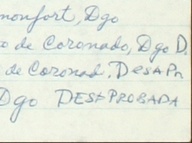 monfort, Dgo
o de Coronado, Dgo D.
de Coronad. DESAPr
Dgo DESAPROBADA